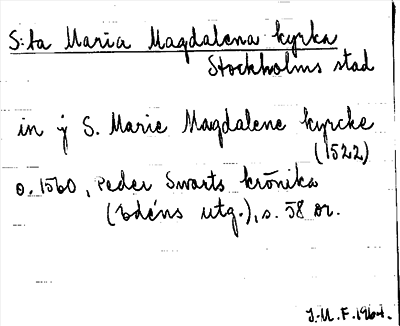 S:ta Maria Magdalena kyrka
Stockholms stad
in j S. Marie Magdalene kyrcke
(1522)
o. 1560, Peder Swarts krönika
(Edéns utg.), s. 58 or.
J.M.F. 1964.